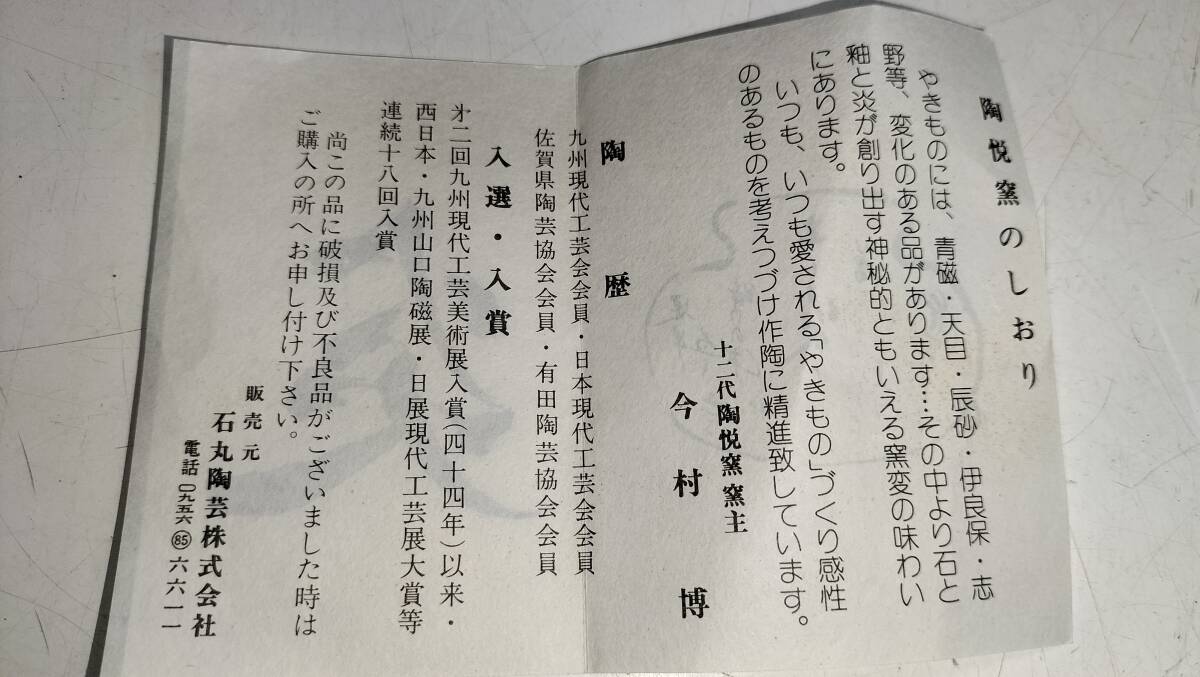 陶悦窯のしおり
やきものには、青磁・天目・辰砂・伊良保・志
野等、変化のある品があります…その中より石と
釉と炎が創り出す神秘的ともいえる窯変の味わい
にあります。
いつも、いつも愛される「やきもの」づくり感性
のあるものを考えつづけ作陶に精進致しています。
十二代陶悦窯窯主
今村博
陶歴
九州現代工芸会会員・日本現代工芸会会員
佐賀県陶芸協会会員・有田陶芸協会会員
入選・入賞
才二回九州現代工芸美術展入賞(四十四年)以来・
西日本・九州山口陶磁展・日展現代工芸展大賞等
連続十八回入賞
尚この品に破損及び不良品がございました時は
ご購入の所へお申し付け下さい。
販売元
石丸陶芸株式会社
電話〇九五六㊇85六六一一